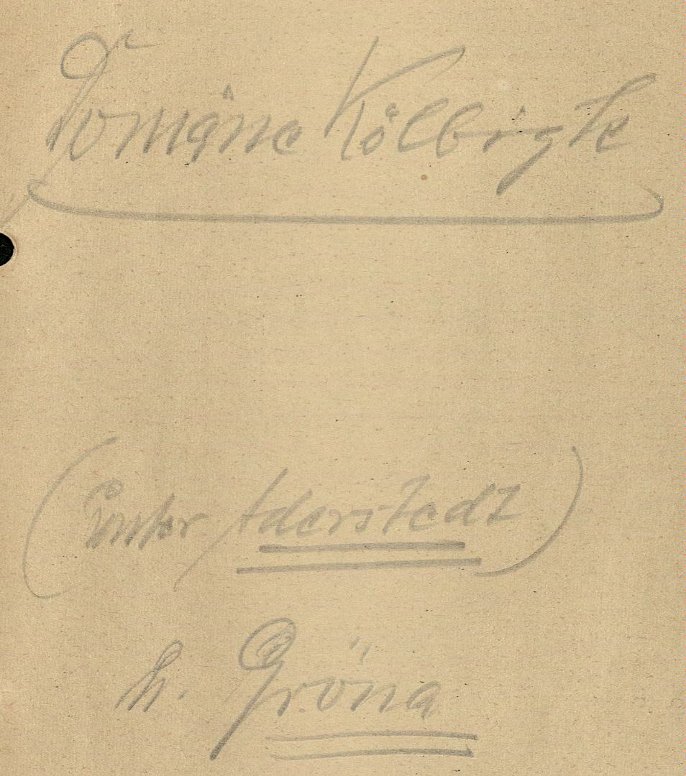 Domäne Kölbigk
(unter Aderstedt)
Gröna